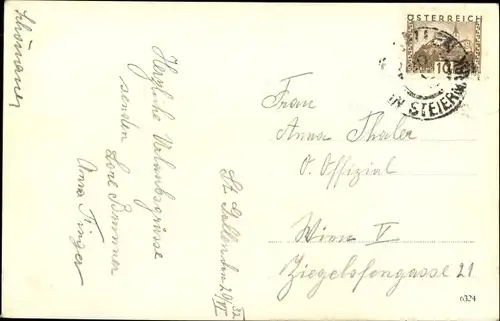 Schönauer
Herzliche Urlaubsgrüsse
senden
Lore Brunner
Anna Finger
St. Gallen den 29/VI 32
ÖSTERREICH
10
IN STEIERM
Frau
Anna Thaler
O. Offizial
Wien V
Ziegelofengasse 21
6324